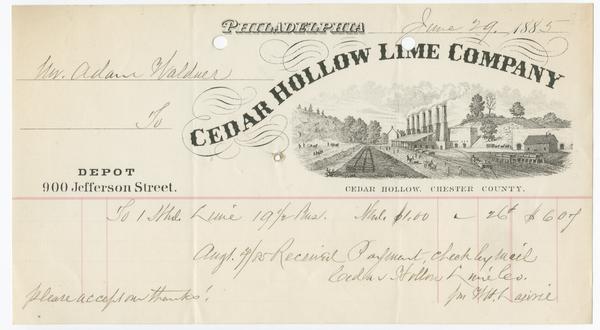 PHILADELPHIA June 29. 1885
Mr. Adam Waldner
To
CEDAR HOLLOW LIME COMPANY
DEPOT
900 Jefferson Street.
CEDAR HOLLOW, CHESTER COUNTY.
To 1 Hhd. Lime 19 1/2 Bus. Hhd. $1.00 26¢ $ 6 07
Augt. 4/85 Received Payment, check by mail
Cedar Hollow Lime Co.
please accept our thanks! per W.H.